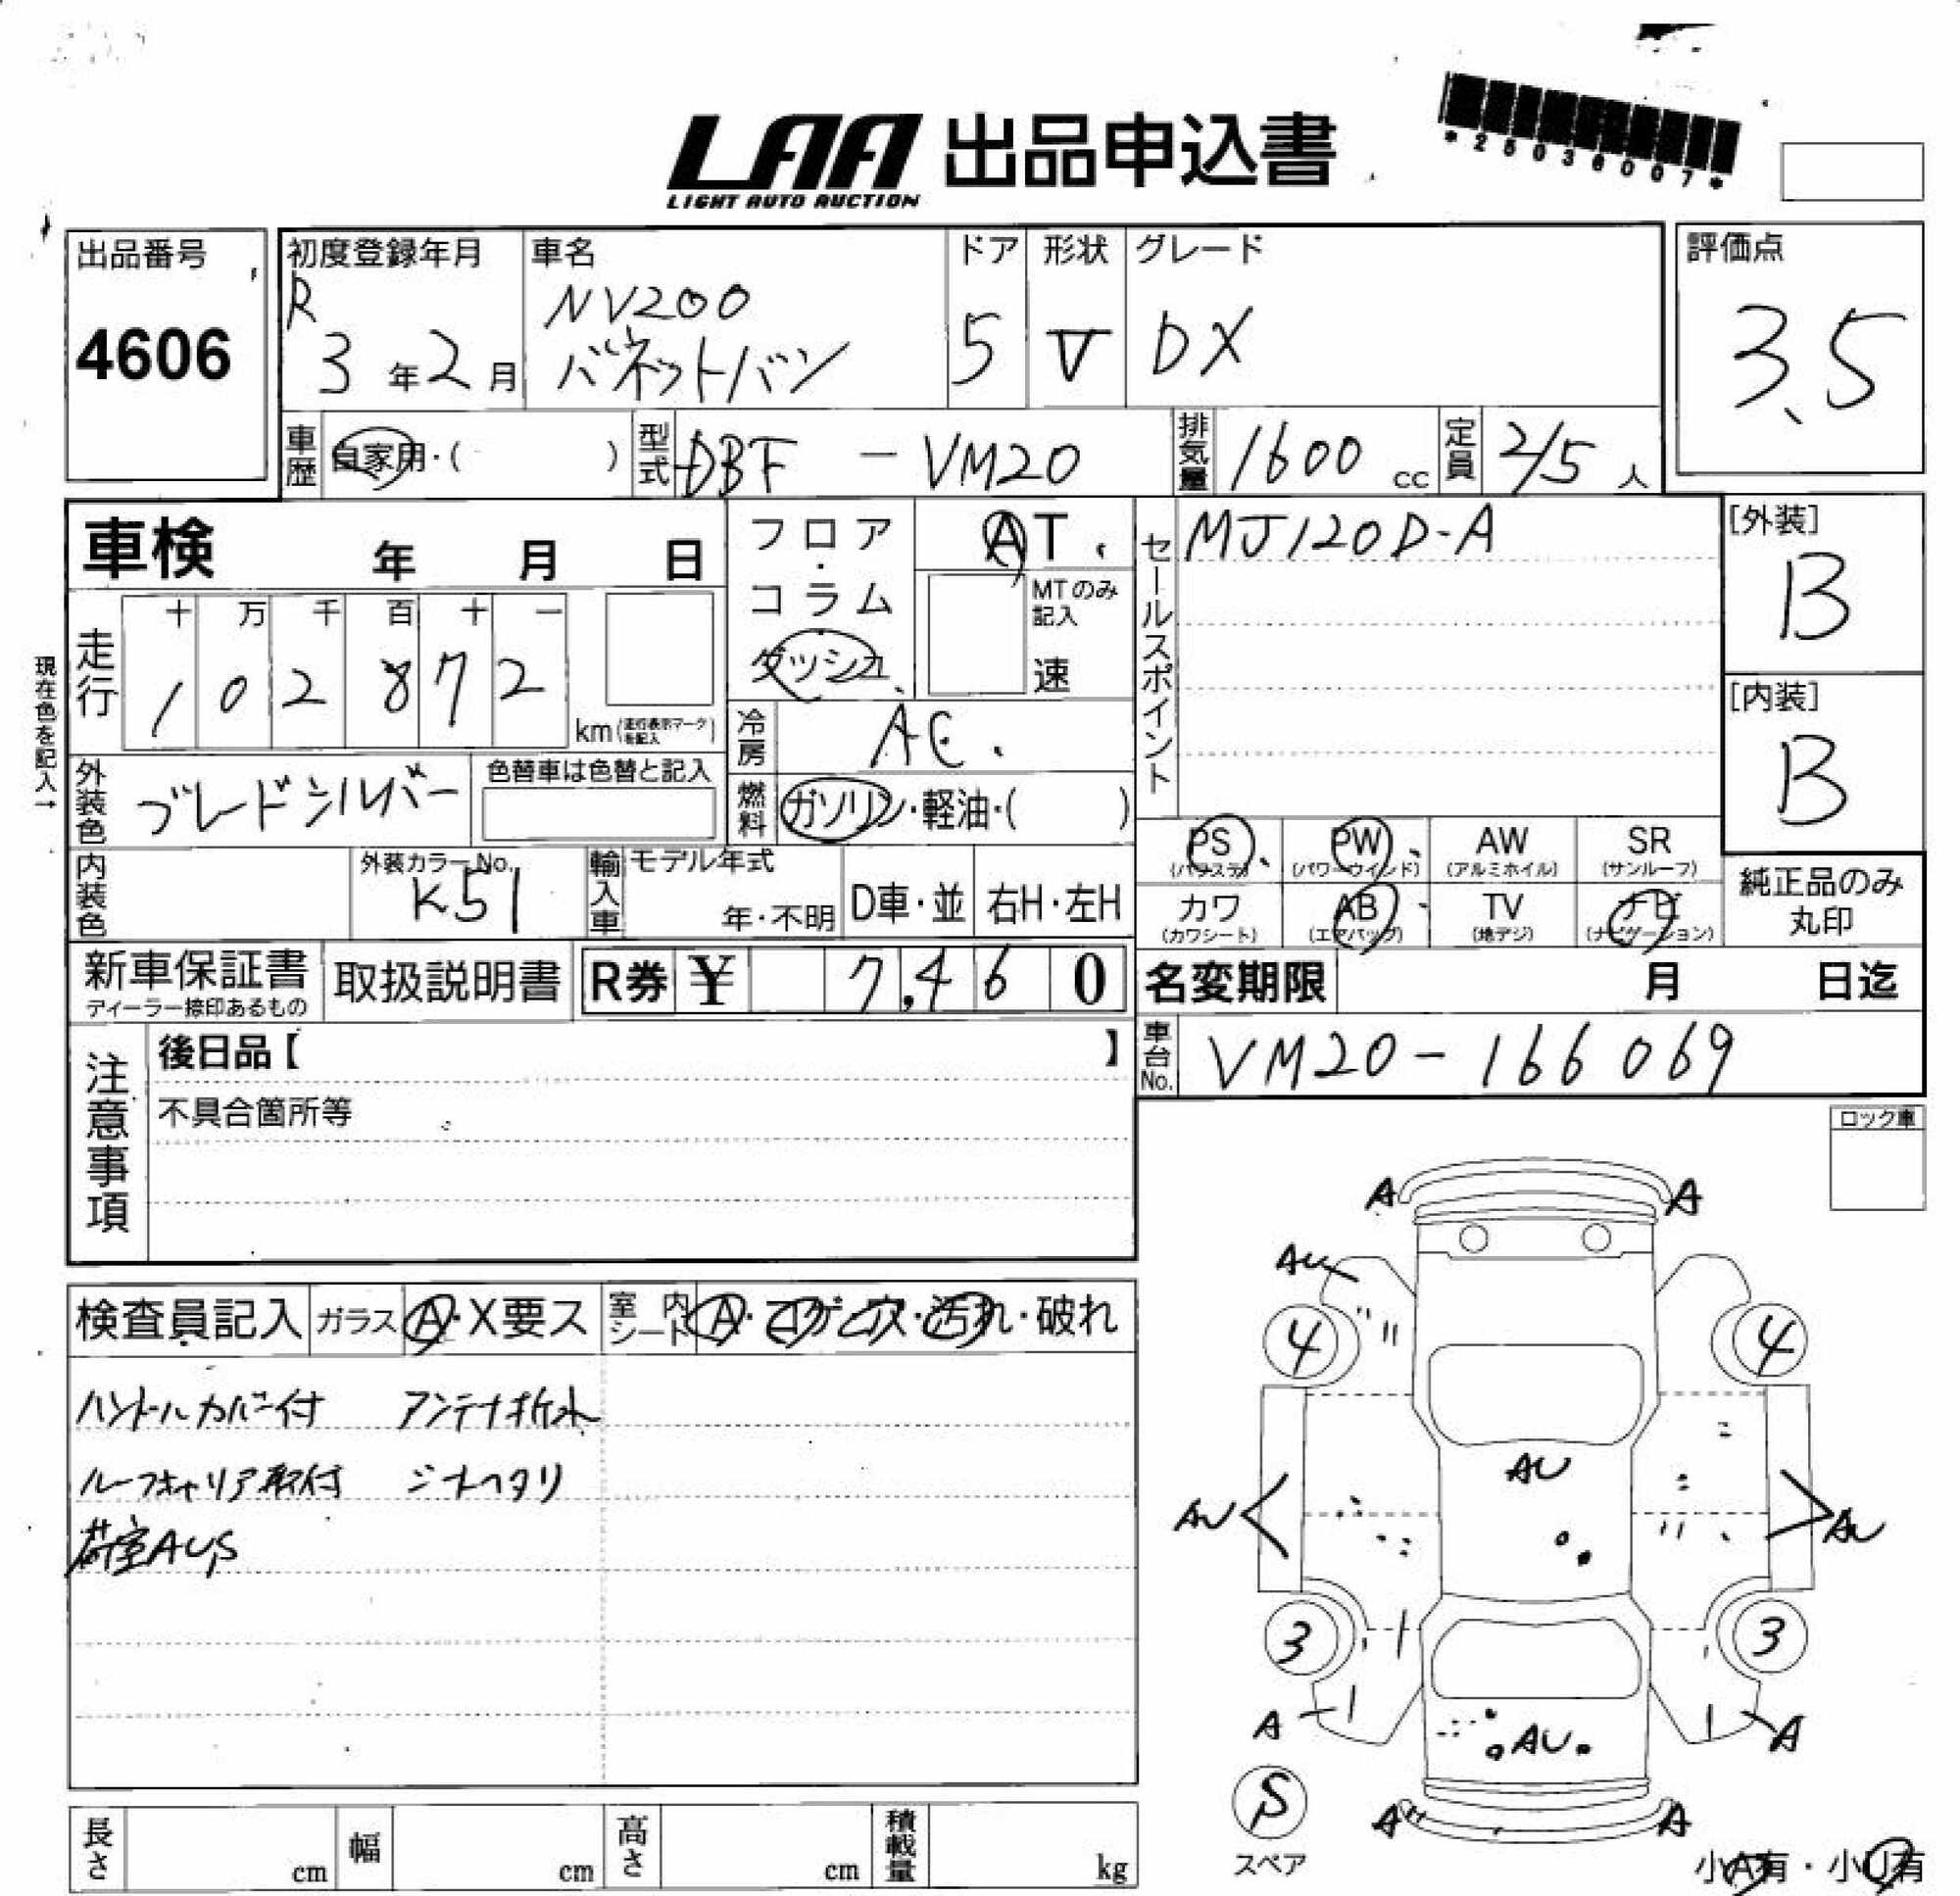 LAA 出品申込書
LIGHT AUTO AUCTION
*25036007*
出品番号
4606
初度登録年月
R
3年2月
車名
NV200
バネットバン
ドア
5
形状
V
グレード
DX
評価点
3.5
車歴
自家用・( )
型式
DBF - VM20
排気量
1600 cc
定員
2/5 人
車検 年 月 日
フロア・コラム
ダッシュ
AT
MTのみ記入
速
セールスポイント
MJ120D-A
[外装]
B
[内装]
B
現在色を記入→
走行
十 万 千 百 十 一
1 0 2 8 7 2
km(走行表示マークを記入)
冷房
AC
燃料
ガソリン・軽油・( )
外装色
ブレードシルバー
色替車は色替と記入
内装色
外装カラーNo.
K51
輸入車
モデル年式
年・不明
D車・並
右H・左H
PS
(パワステ)
PW
(パワーウインド)
AW
(アルミホイル)
SR
(サンルーフ)
カワ
(カワシート)
AB
(エアバッグ)
TV
(地デジ)
ナビ
(ナビゲーション)
純正品のみ
丸印
新車保証書
ディーラー捺印あるもの
取扱説明書
R券 ¥ 7,460
名変期限 月 日迄
車台No.
VM20-166069
注意事項
後日品【 】
不具合箇所等
ロック車
検査員記入
ガラス A・X要ス
室内シート A・コゲ・穴・汚れ・破れ
ハンドルカバー付 アンテナ折れ
ルーフキャリア取付 ジナヘタリ
荷室AUS
A A
AU
4 4
AU
AU AU
3 3
A A
AU
S
スペア
A A
小A有・小U有
長さ cm
幅 cm
高さ cm
積載量 kg